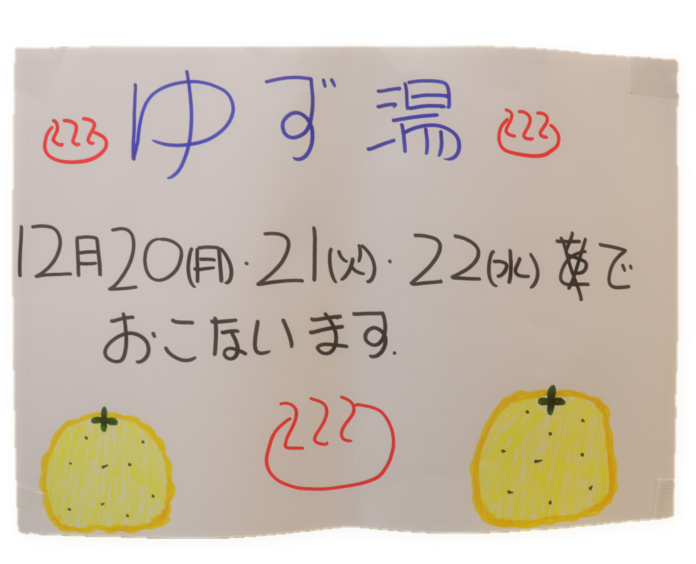 ゆず湯
12月20(月)・21(火)・22(水)まで
おこないます.